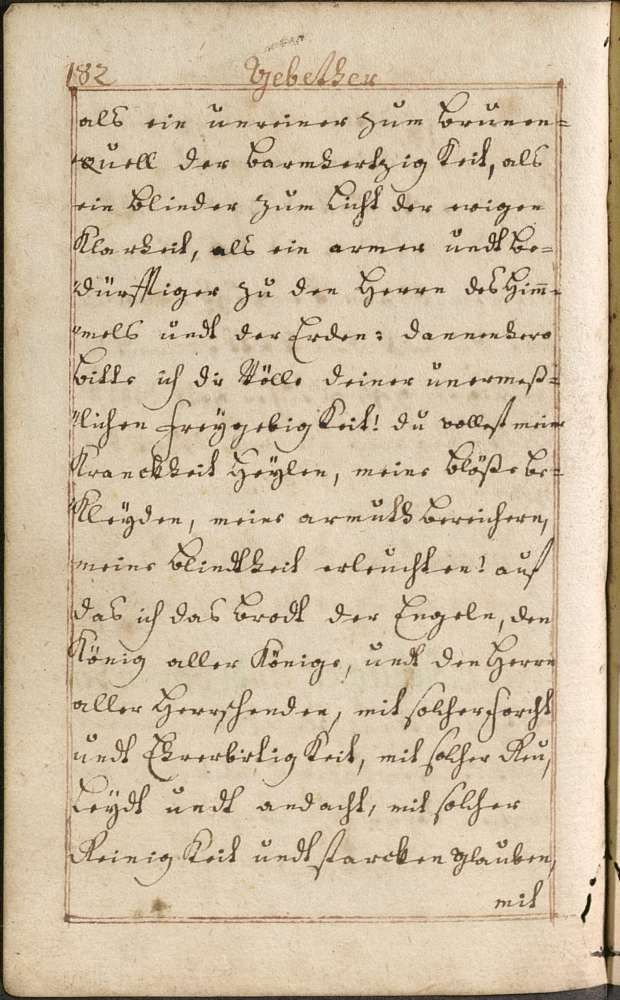 182
Gebether
als ein unreiner zum brunen=
Quell der barmhertzig Keit, als
ein blinder zum licht der ewigen
Klarheit, als ein armer undt be=
dürfftiger zu den Herrn des Him̅=
mels undt der Erden: dannenhero
bitte ich die Völle deiner unermeß=
lichen freÿgebig Keit! du wollest meine
Kranckheit Heÿlen, meine blöße be=
Kleÿden, meine armuth bereichern,
meine blindtheit erleuchten! auf
das ich das brodt der Engeln, den
König aller Könige, undt den Herrn
aller Herrschenden, mit solcher forcht
undt Ehrerbietig Keit, mit solcher Reu,
Leÿdt undt andacht, mit solcher
Reinig Keit undt starcken glauben,
mit